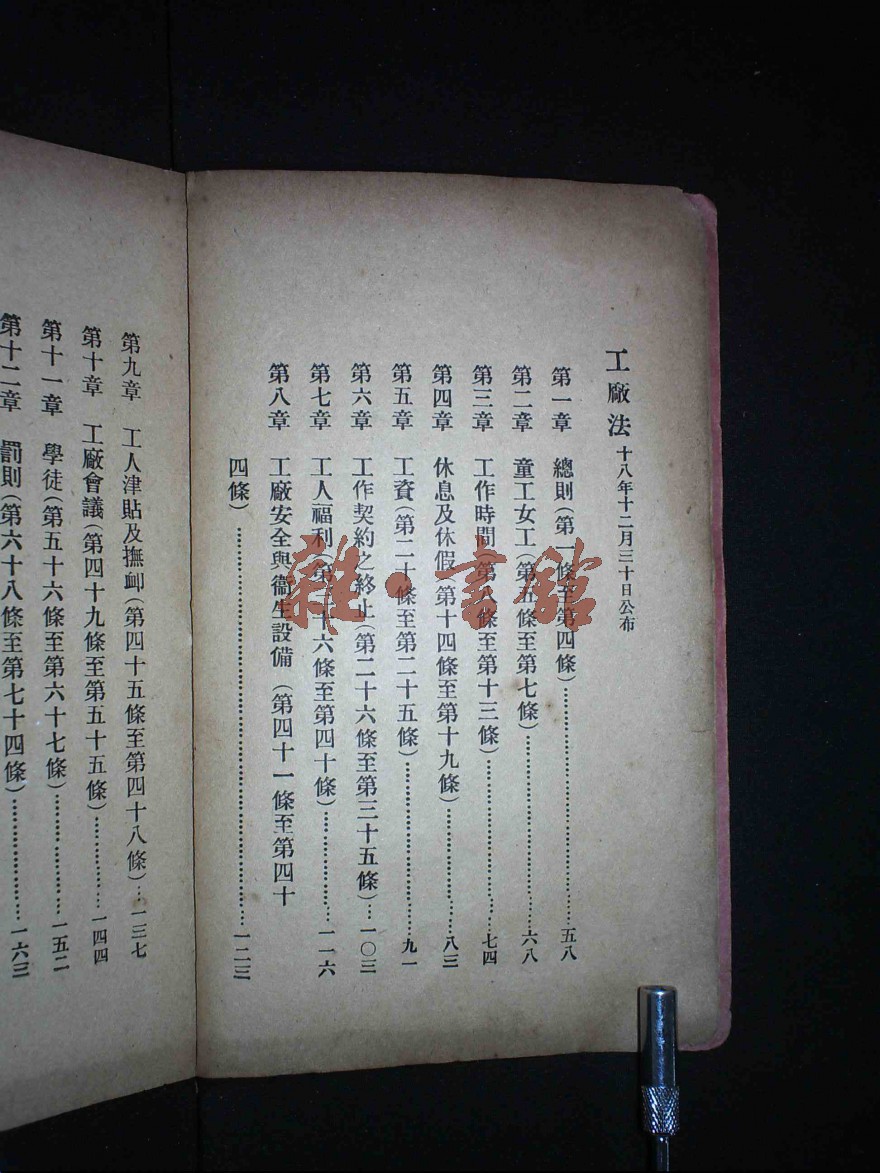 工廠法 十八年十二月三十日公布
第一章 總則(第一條至第四條)……五八
第二章 童工女工(第五條至第七條)……六八
第三章 工作時間(第八條至第十三條)……七四
第四章 休息及休假(第十四條至第十九條)……八三
第五章 工資(第二十條至第二十五條)……九一
第六章 工作契約之終止(第二十六條至第三十五條)…一〇三
第七章 工人福利(第三十六條至第四十條)……一一六
第八章 工廠安全與衞生設備 (第四十一條至第四十
四條)……一二三
第九章 工人津貼及撫卹(第四十五條至第四十八條)…一三七
第十章 工廠會議(第四十九條至第五十五條)……一四四
第十一章 學徒(第五十六條至第六十七條)……一五二
第十二章 罰則(第六十八條至第七十四條)……一六三
雜·書館